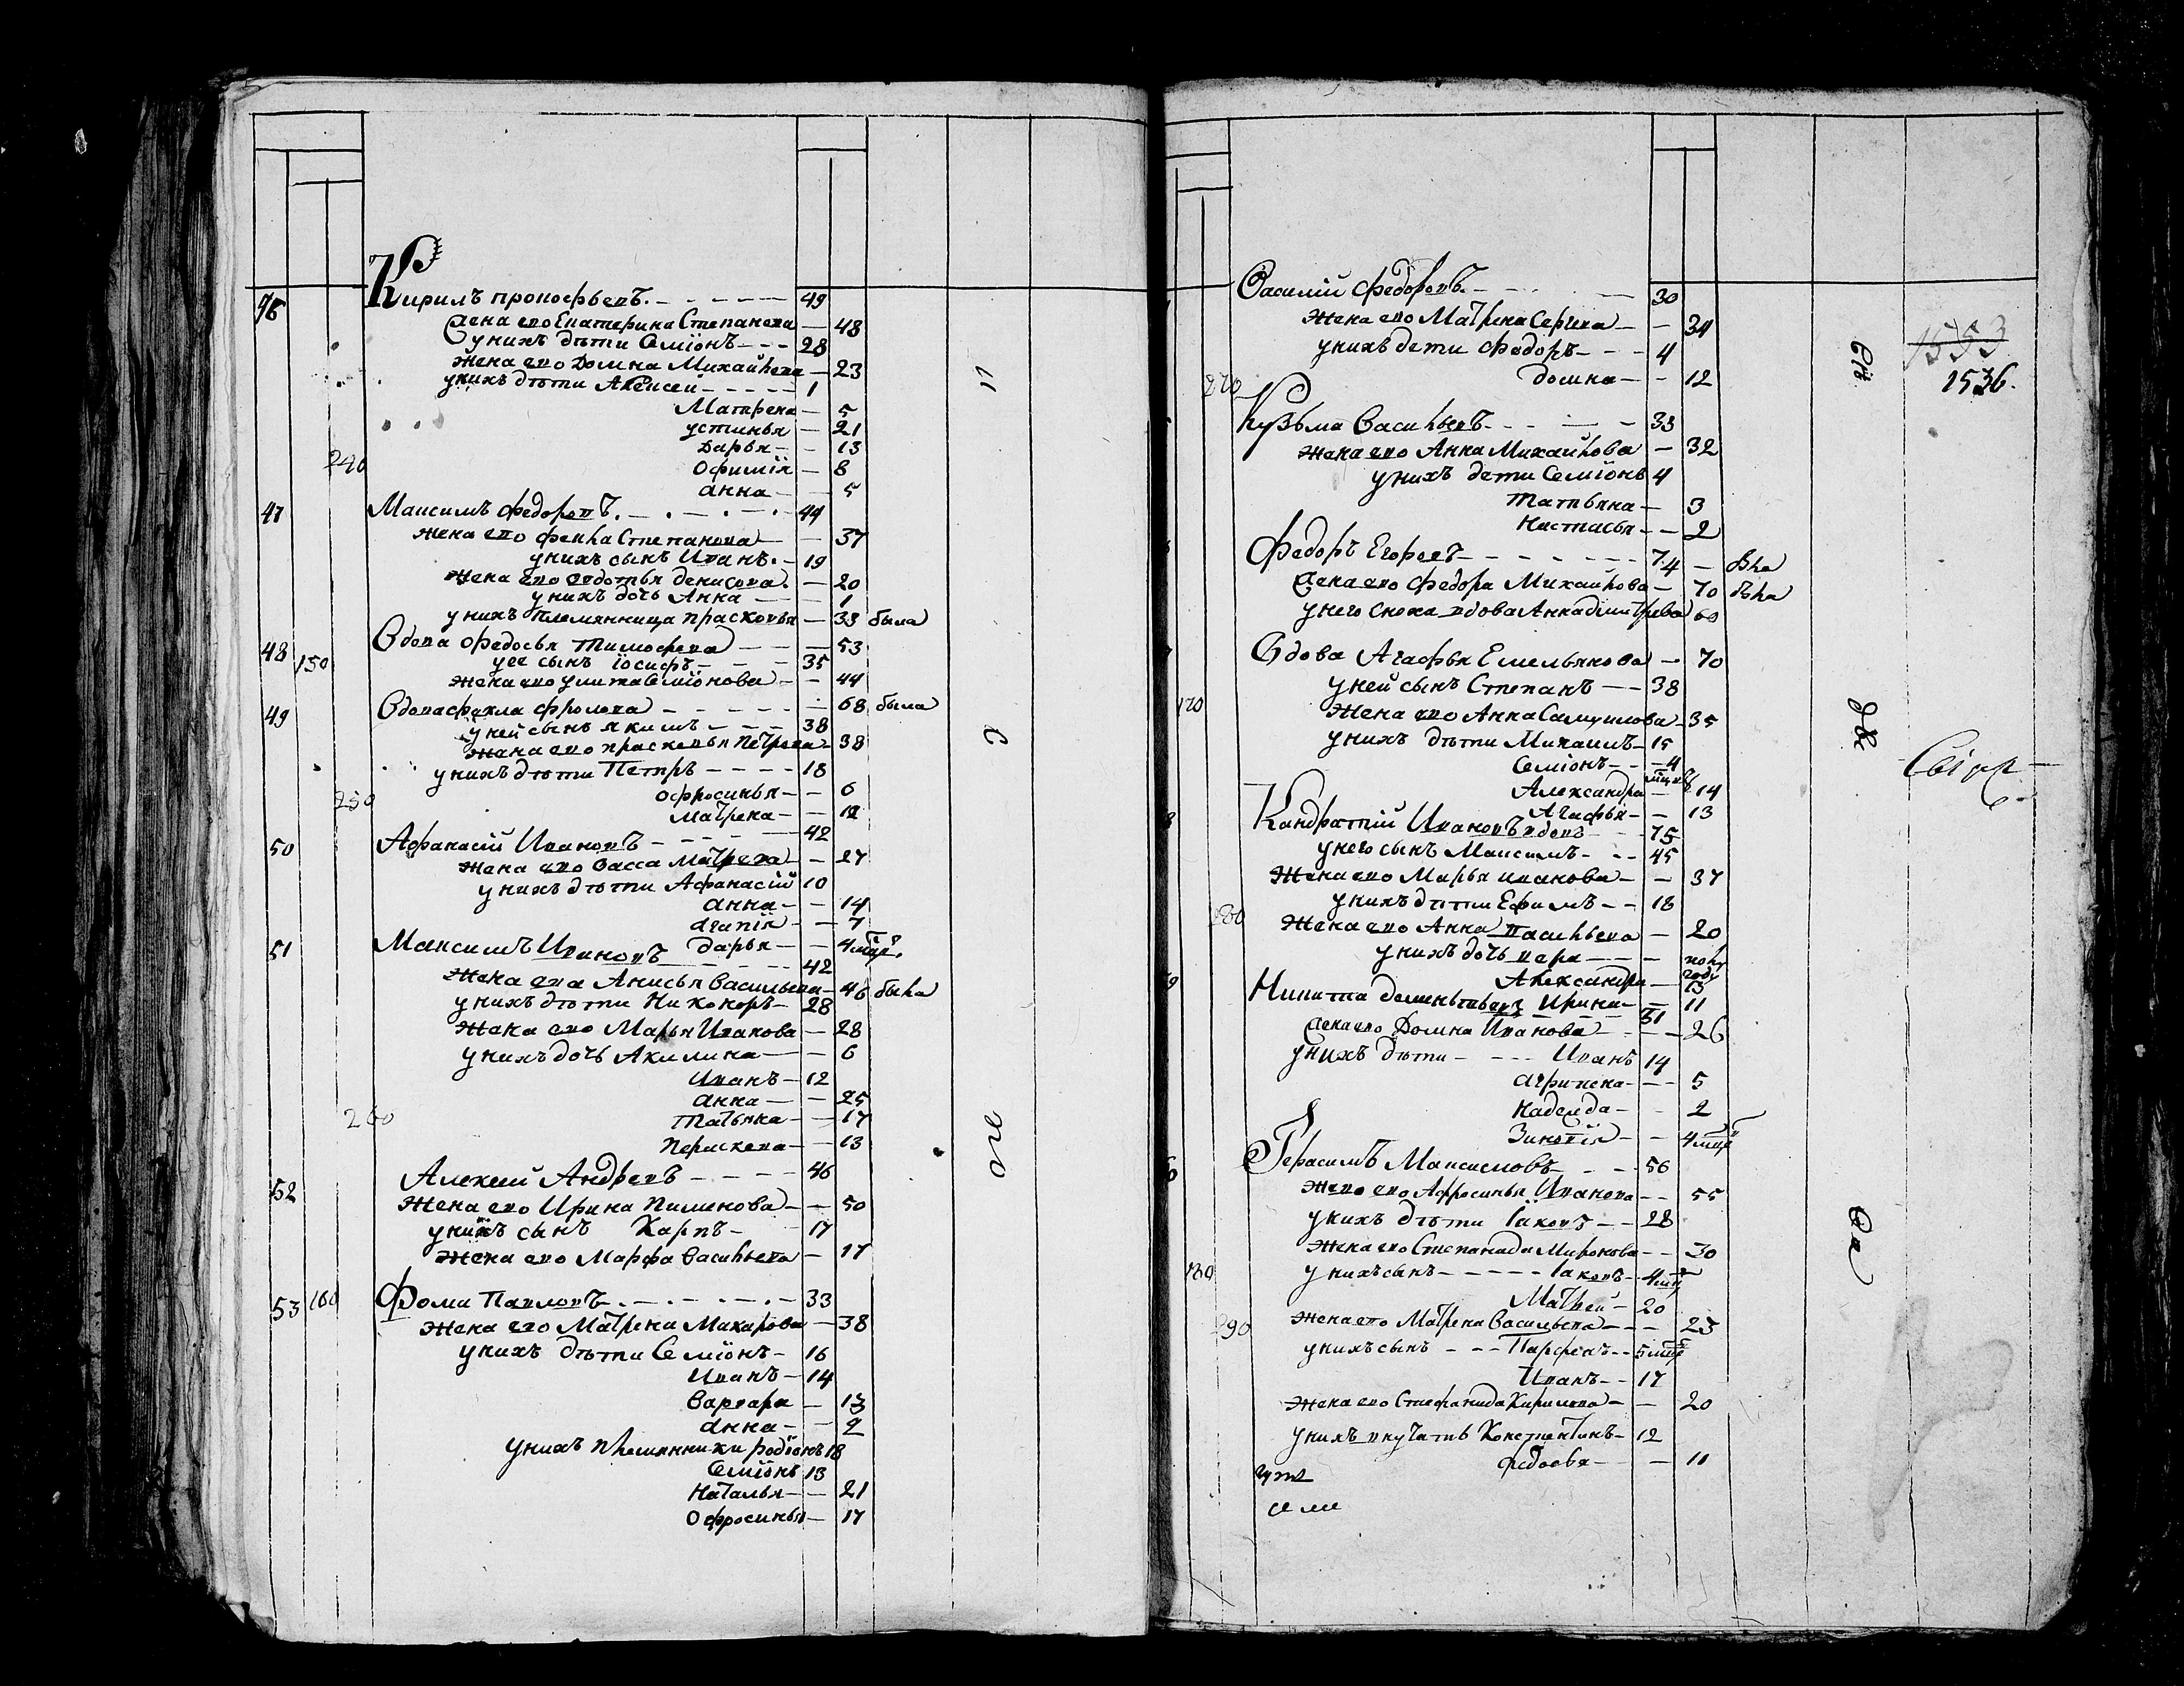 46 Кирилъ прокофьевъ. 49
Жена ево Екатерина Степанова 48
у нихъ дѣти Семіонъ 28
жена ево Домна Михайлева 23
у нихъ дѣти Алексей 1
Матрена 5
устинья 21
Дарья 13
240 Офимія 8
анна 5
47 Максимъ федоровъ. 44
жена ево фекла Степанова 37
у нихъ сынъ Иванъ 19
жена ево евдотья денисова 20
у нихъ дочь Анна 1
у нихъ племянница прасковья 33 была
48 150 Вдова федосья Тимофева 53
у ее сынъ іосифъ 35
жена ево улита Семіонова 44
49 Вдова фекла фролова 68 была
у ней сынъ якимъ 38
жена ево прасковья Петрова 38
у нихъ дѣти Петръ 18
250 Офросинья 6
Матрена 12
50 Афанасій Ивановъ 42
жена ево Васса Матвева 27
у нихъ дѣти Афанасій 10
анна 14
агапія 7
дарья 4 мцъ.
51 Максимъ Ивановъ 42
жена ева Анисья Васильева 46 была
у нихъ дѣти Никоноръ 28
жена ево Марья Иванова 28
у нихъ дочь Акилина 6
Иванъ 12
анна 25
260 Татьяна 17
Пераскева 13
52 Алексей Андревъ 46
жена ево Ирина Пименова 50
у нихъ сынъ Карпъ 17
жена ево Марфа Васильева 17
53 160 Фома Павловъ 33
жена ево Матрена Макарова 38
у нихъ дѣти Семіонъ 16
Иванъ 14
Варвара 13
анна 2
у нихъ племянники родіонъ 18
Семіонъ 13
Наталья 21
Офросинья 17
Василій Федоровъ 30
жена ево Матрена Сергева 34
у нихъ дети Федоръ 4
270 домна 12
Кузьма Васильевъ 33
жена ево Анна Михайлова 32
у нихъ дети Семіонъ 4
Татьяна 3
Настасья 2
Федоръ Егоревъ 74
Жена ево Федора Михайлова 70
у него сноха вдова Анна дмитрева 60
Вдова Агафья Емельянова 70
у ней сынъ Степанъ 38
170 жена ево Анна Самуилова 35
у нихъ дѣти Михаилъ 15
Семіонъ 4 мцовъ
Александра 14
Агафья 13
Кандратій Ивановъ вдовъ 75
у него сынъ Максимъ 45
жена ево Марья иванова 37
у нихъ дѣти Ефимъ 18
280 жена ево Анна васильева 20
у нихъ дочь вера полу году
Александра 13
Ирина 11
Никита дементьевъ 51
Жена ево Домна Иванова 26
у нихъ дѣти Иванъ 14
агрипена 5
надежда 2
Зиновія 4 мцъ
Герасимъ Максимовъ 56
жена ево Афросинья Иванова 55
у нихъ дѣти Іаковъ 28
жена ево Степанида Миронова 30
180 у нихъ сынъ Іаковъ 4 мцъ
Матвей 20
290 жена ево Матрена Васильева 23
у нихъ сынъ Парфенъ 5 мцъ
Иванъ 17
жена ево Стефанида Кирилова 20
у нихъ внучатъ Констентинъ 12
федосья 11
1533
1536.